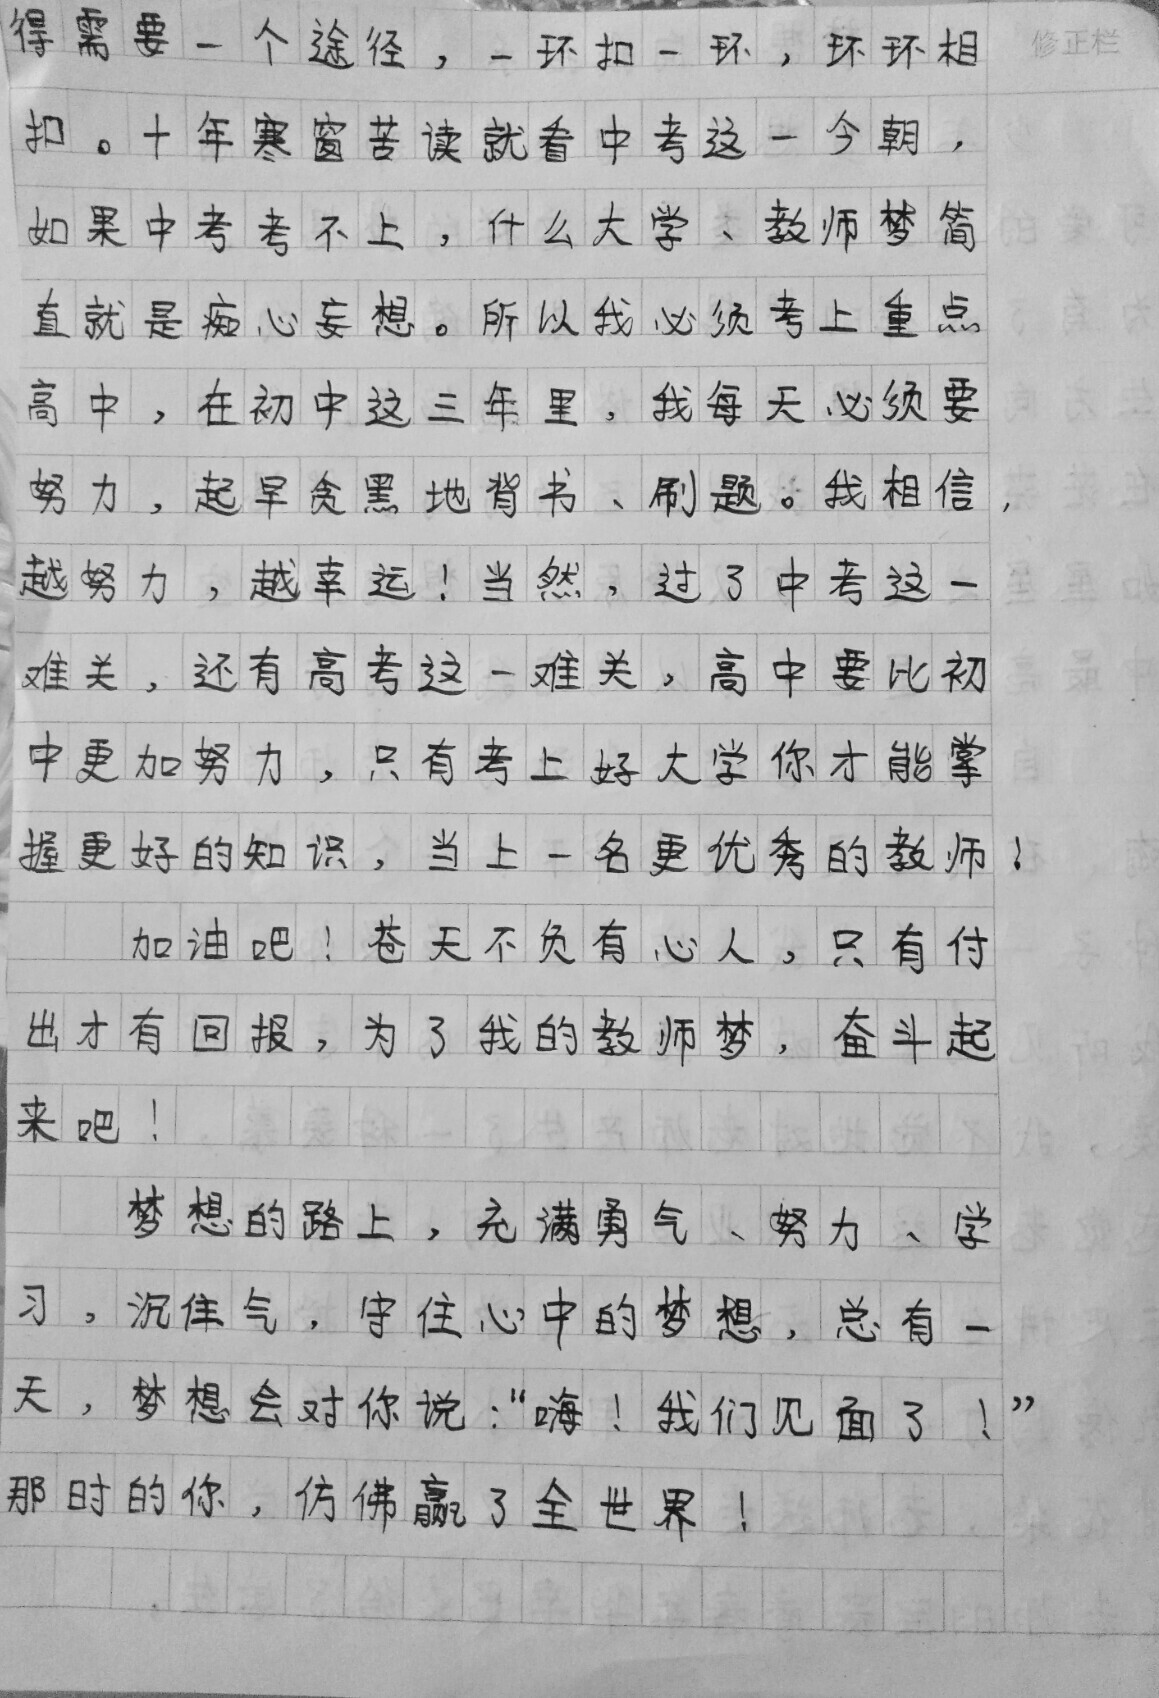 得需要一个途径，一环扣一环，环环相
修正栏
扣。十年寒窗苦读就看中考这一今朝，
如果中考考不上，什么大学、教师梦简
直就是痴心妄想。所以我必须考上重点
高中，在初中这三年里，我每天必须要
努力，起早贪黑地背书、刷题。我相信，
越努力，越幸运！当然，过了中考这一
难关，还有高考这一难关，高中要比初
中更加努力，只有考上好大学你才能掌
握更好的知识，当上一名更优秀的教师！
加油吧！苍天不负有心人，只有付
出才有回报，为了我的教师梦，奋斗起
来吧！
梦想的路上，充满勇气、努力、学
习，沉住气，守住心中的梦想，总有一
天，梦想会对你说：“嗨！我们见面了！”
那时的你，仿佛赢了全世界！